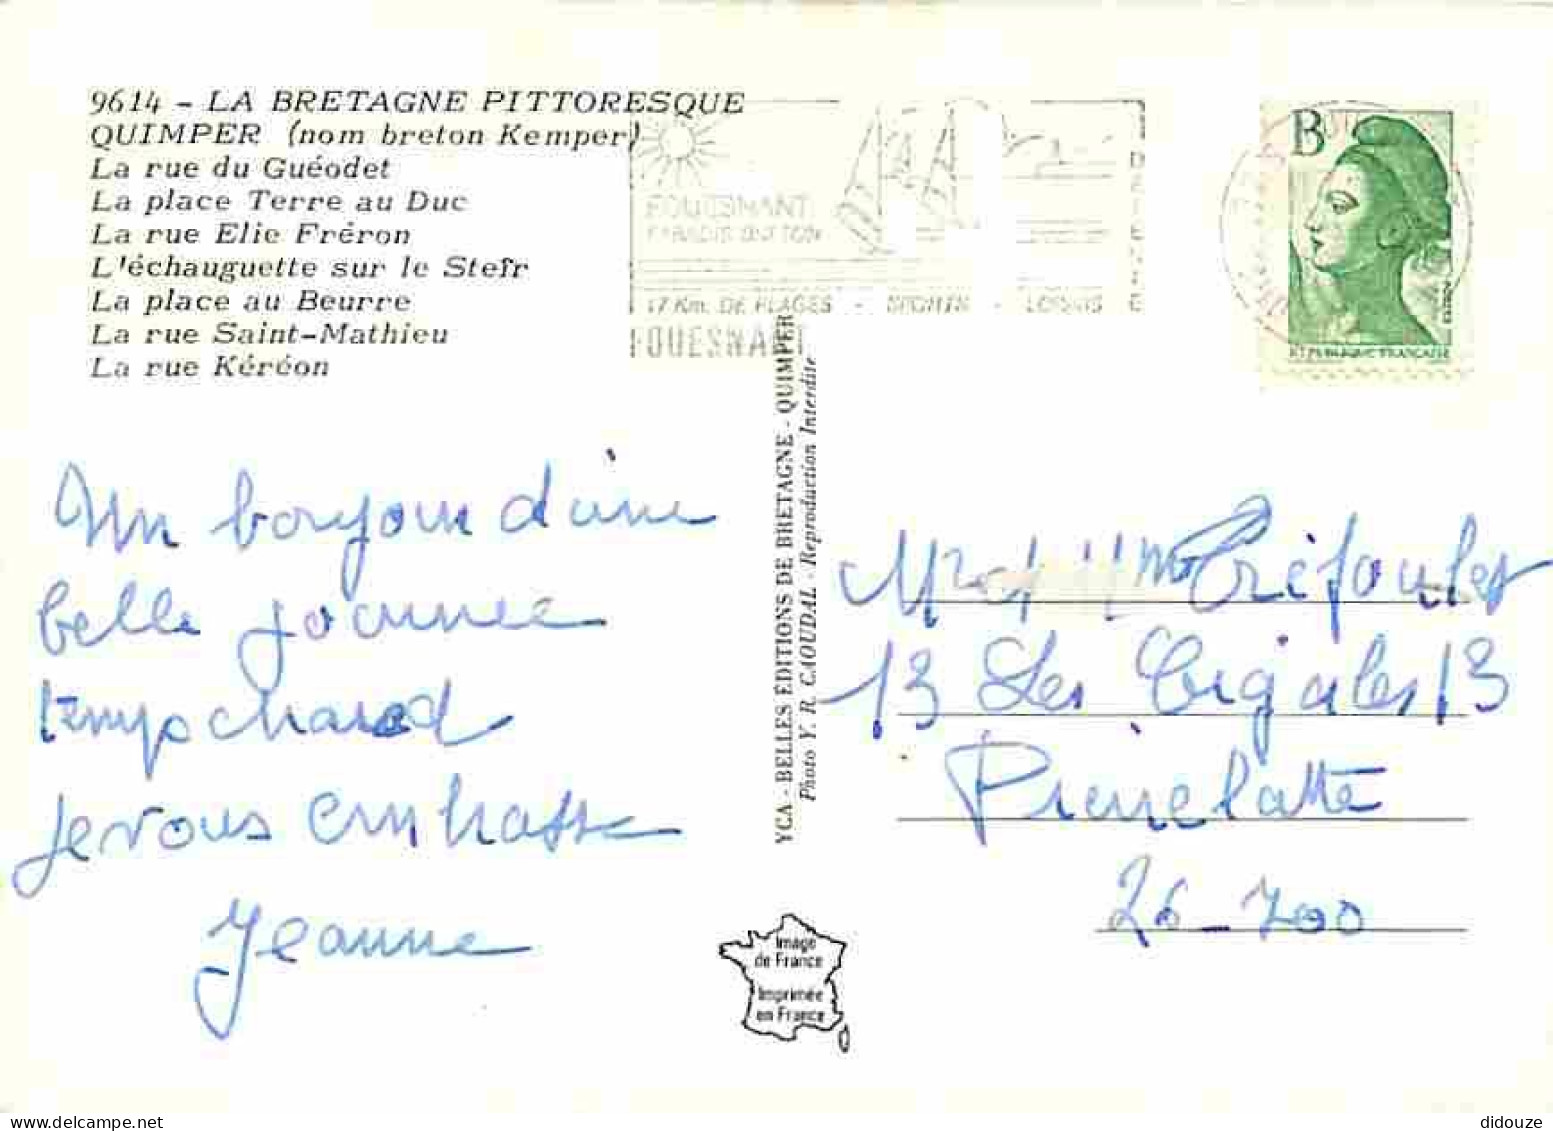 9614 - LA BRETAGNE PITTORESQUE
QUIMPER (nom breton Kemper)
La rue du Guéodet
La place Terre au Duc
La rue Elie Fréron
L'échauguette sur le Steïr
La place au Beurre
La rue Saint-Mathieu
La rue Kéréon
FOUESNANT
17 Km. DE PLAGES - - LOISIRS
FOUESNANT
B
RÉPUBLIQUE FRANÇAISE
Un bonjour d'une
belle journée
temps chaud
je vous embrasse
Jeanne
YCA - BELLES ÉDITIONS DE BRETAGNE - QUIMPER
Photo Y. R. CAOUDAL - Reproduction Interdite
Mr et Mme Tréfoulet
13 Les Cigales 13
Pierrelatte
26-700
Image
de France
Imprimée
en France
didouze